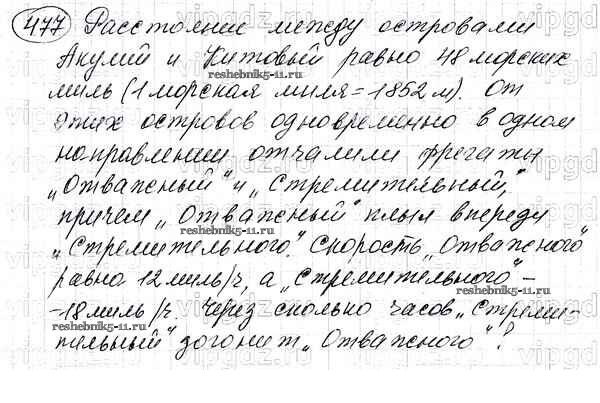 477 Расстояние между островами
Акулий и Китовый равно 48 морских
reshebnik5-11.ru
миль (1 морская миля = 1852 м). От
этих островов одновременно в одном
направлении отчалили фрегаты
„Отважный" и „Стремительный",
причем „Отважный" плыл впереди
reshebnik5-11.ru
„Стремительного". Скорость „Отважного"
равна 12 миль/ч, а „Стремительного" –
reshebnik5-11.ru
– 18 миль/ч. Через сколько часов „Стреми-
reshebnik5-11.ru
тельный" догонит „Отважного"?
vipgdz.ru